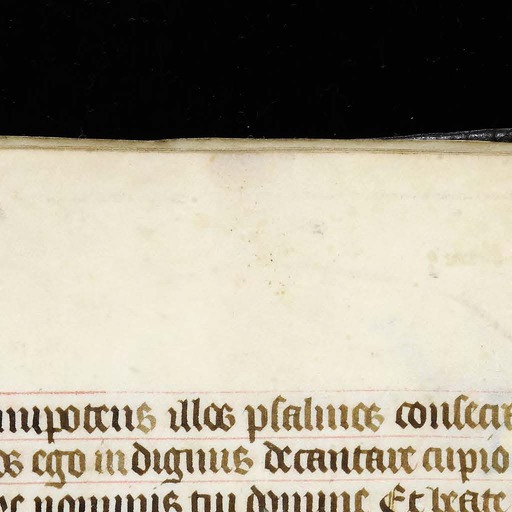 nnipotens illos psalmos consecra
os ego indignus decantare cupio
nominis tui domine Et beate